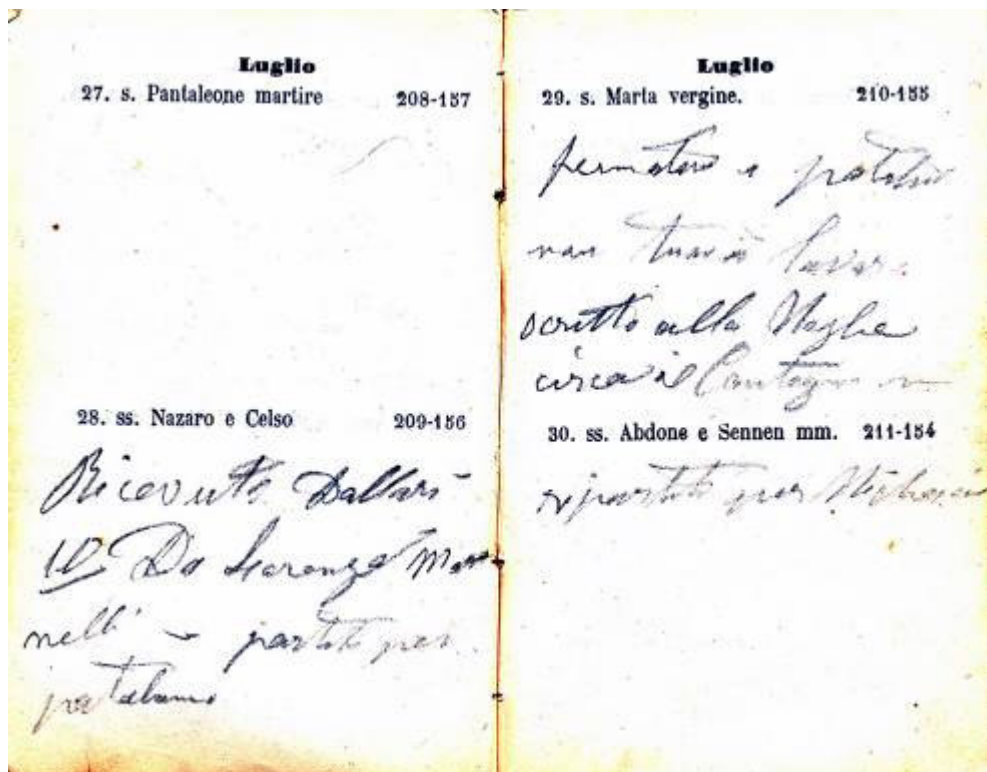 Luglio
27. s. Pantaleone martire 208-157
28. ss. Nazaro e Celso 209-156
Ricevuto Dallari
10 Da Lorenzo
nelli – partito per
Luglio
29. s. Marta vergine. 210-155
fermatomi a
non lavoro
scritto alla Moglie
circa il
30. ss. Abdone e Sennen mm. 211-154
ripartito per